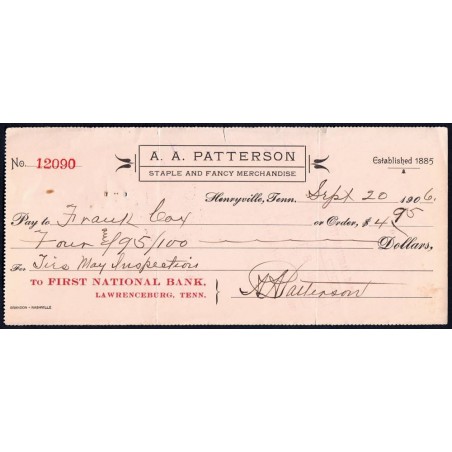 A. A. PATTERSON
STAPLE AND FANCY MERCHANDISE
No. 12090
Established 1885
Henryville, Tenn. Sept 20 1906
Pay to Frank Cox or Order, $ 4 95
Four & 95/100 Dollars,
For Ties May Inspection
TO FIRST NATIONAL BANK,
LAWRENCEBURG, TENN.
AA Patterson
BRANDON - NASHVILLE